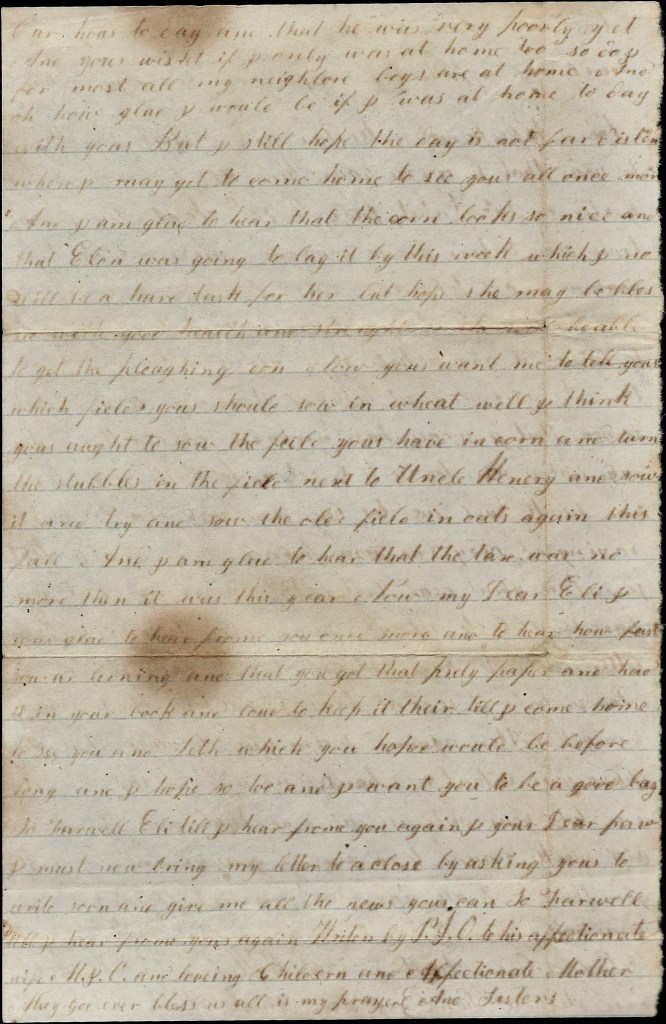 hear to day and that he was very poorly yet
And yous wisht if I only was at home too so do I
for most all my neighbore boys are at home And
oh how glad I would be if I was at home to day
with yous But I still hope the day is not far disten
where I may get to come home to see yous all once mor
And I am glad to hear that the corn looks so nice and
that Elon was going to lay it by this week which I no
will be a hard task for her but hope she may be bles
with good health and strenght
to get the ploughing don Now yous want me to tell yous
which field yous should sow in wheat well I think
yous aught to sow the field yous have in corn and turn
the stubbles in the field next to Uncle Henery and sow
it and try and sow the old field in outs again this
fall And I am glad to hear that the tax was no
more then it was this year Now my Dear Eli I
was glad to hear frome you once more and to hear how fast
you ar lerning and that you got that prety paper and had
it in your book and love to keep it their till I come home
to see you and Seth which you hoped would be before
long and I hope so too and I want you to be a good boy
So Farwell Eli till I hear frome you again I your Dear
I must now bring my letter to a close by asking yous to
write soon and give me all the news yous can So Farwell
till I hear frome yous again Writen by P.J.C. to his affectionate
wife M.J.C. and loveing Childern and Affectionate Mother
May god ever bless us all is my prayer And Sisters